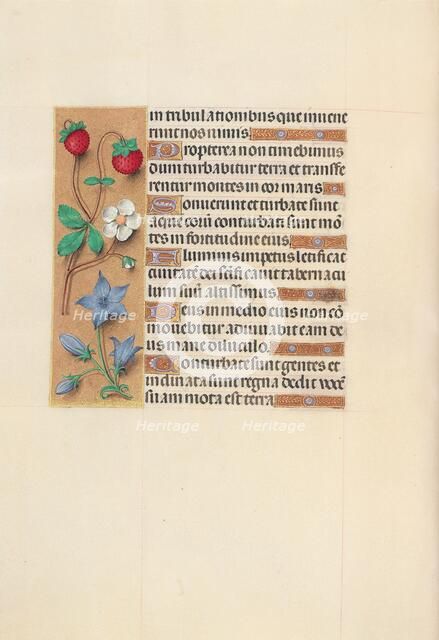 in tribulationibus que invene
runt nos nimis.
Propterea non timebimus
dum turbabitur terra et transfe
rentur montes in cor maris
Sonuerunt et turbate sunt
aque eorū conturbati sunt mō
tes in fortitudine eius.
Fluminis impetus letificat
civitatē dei sctificavit tabernacu
lum suū altissimus.
Deus in medio eius non cō
movebitur adiuvabit eam de
us mane diluculo.
Conturbate sunt gentes et
inclinata sunt regna dedit vocē
suam mota est terra
Heritage Heritage
Heritage Heritage